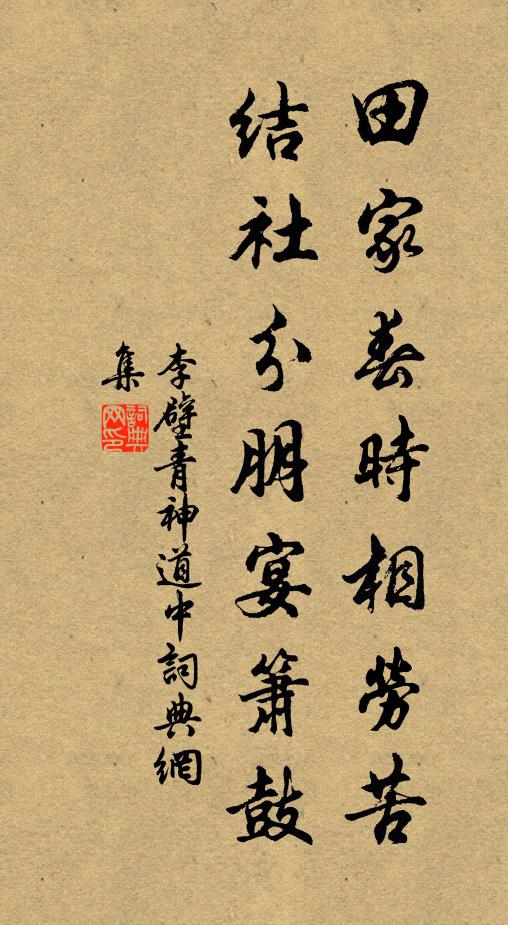 田家春時相勞苦
結社分朋宴簫鼓
李壁青神道中詞典網
集
詞典网印